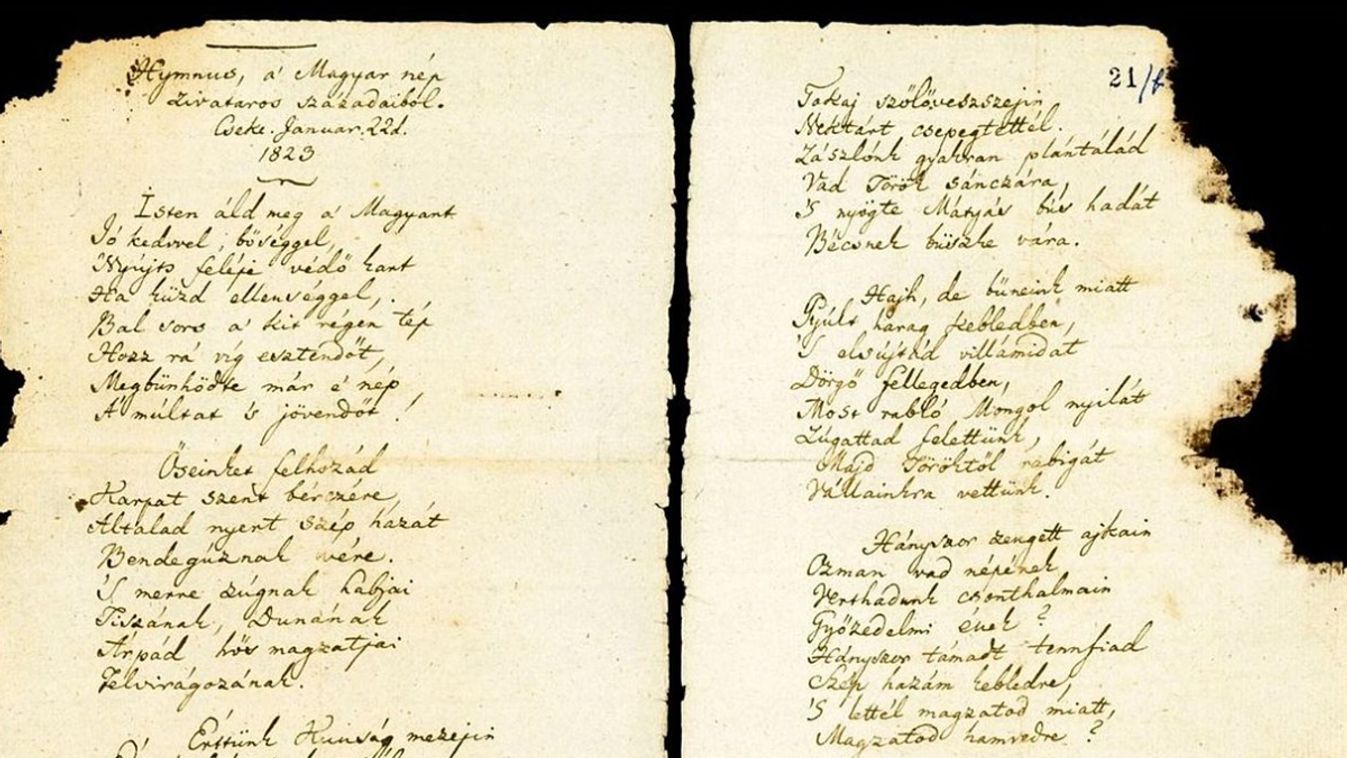 Hymnus, a' Magyar nép
zivataros századaiból.
Cseke. Januar. 22d.
1823
Isten áld meg a' Magyart
Jó kedvvel, bőséggel,
Nyújts feléje védő kart
Ha küzd ellenséggel,
Bal sors a' kit régen tép
Hozz rá víg esztendőt,
Megbünhödte már e' nép
A' múltat 's jövendőt!
Őseinket felhozád
Kárpát szent bérczére,
Általad nyert szép hazát
Bendegúznak vére.
'S merre zúgnak habjai
Tiszának, Dunának
Árpád hős magzatjai
Felvirágozának.
Értünk Kunság mezején
21/b
Tokaj szőlőveszszején
Nektárt csepegtettél.
Zászlónk gyakran plántálád
Vad Török sánczára,
'S nyögte Mátyás bús hadát
Bécsnek büszke vára.
Hajh, de bűneink miatt
Gyúlt harag kebledben,
'S elsújtád villámidat
Dörgő fellegedben,
Most rabló Mongol nyilát
Zúgattad felettünk,
Majd Töröktől rabigát
Vállainkra vettünk.
Hányszor zengett ajkain
Ozman vad népének
Vert hadunk csonthalmain
Győzedelmi ének?
Hányszor támadt tennfiad
Szép hazám kebledre,
'S lettél magzatod miatt,
Magzatod hamvedre?